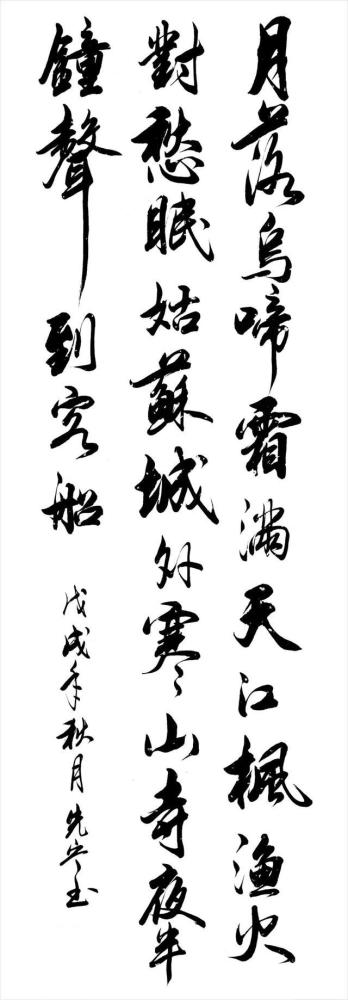 月落烏啼霜滿天江楓漁火
對愁眠姑蘇城外寒山寺夜半
鐘聲到客船
戊戌年秋月先